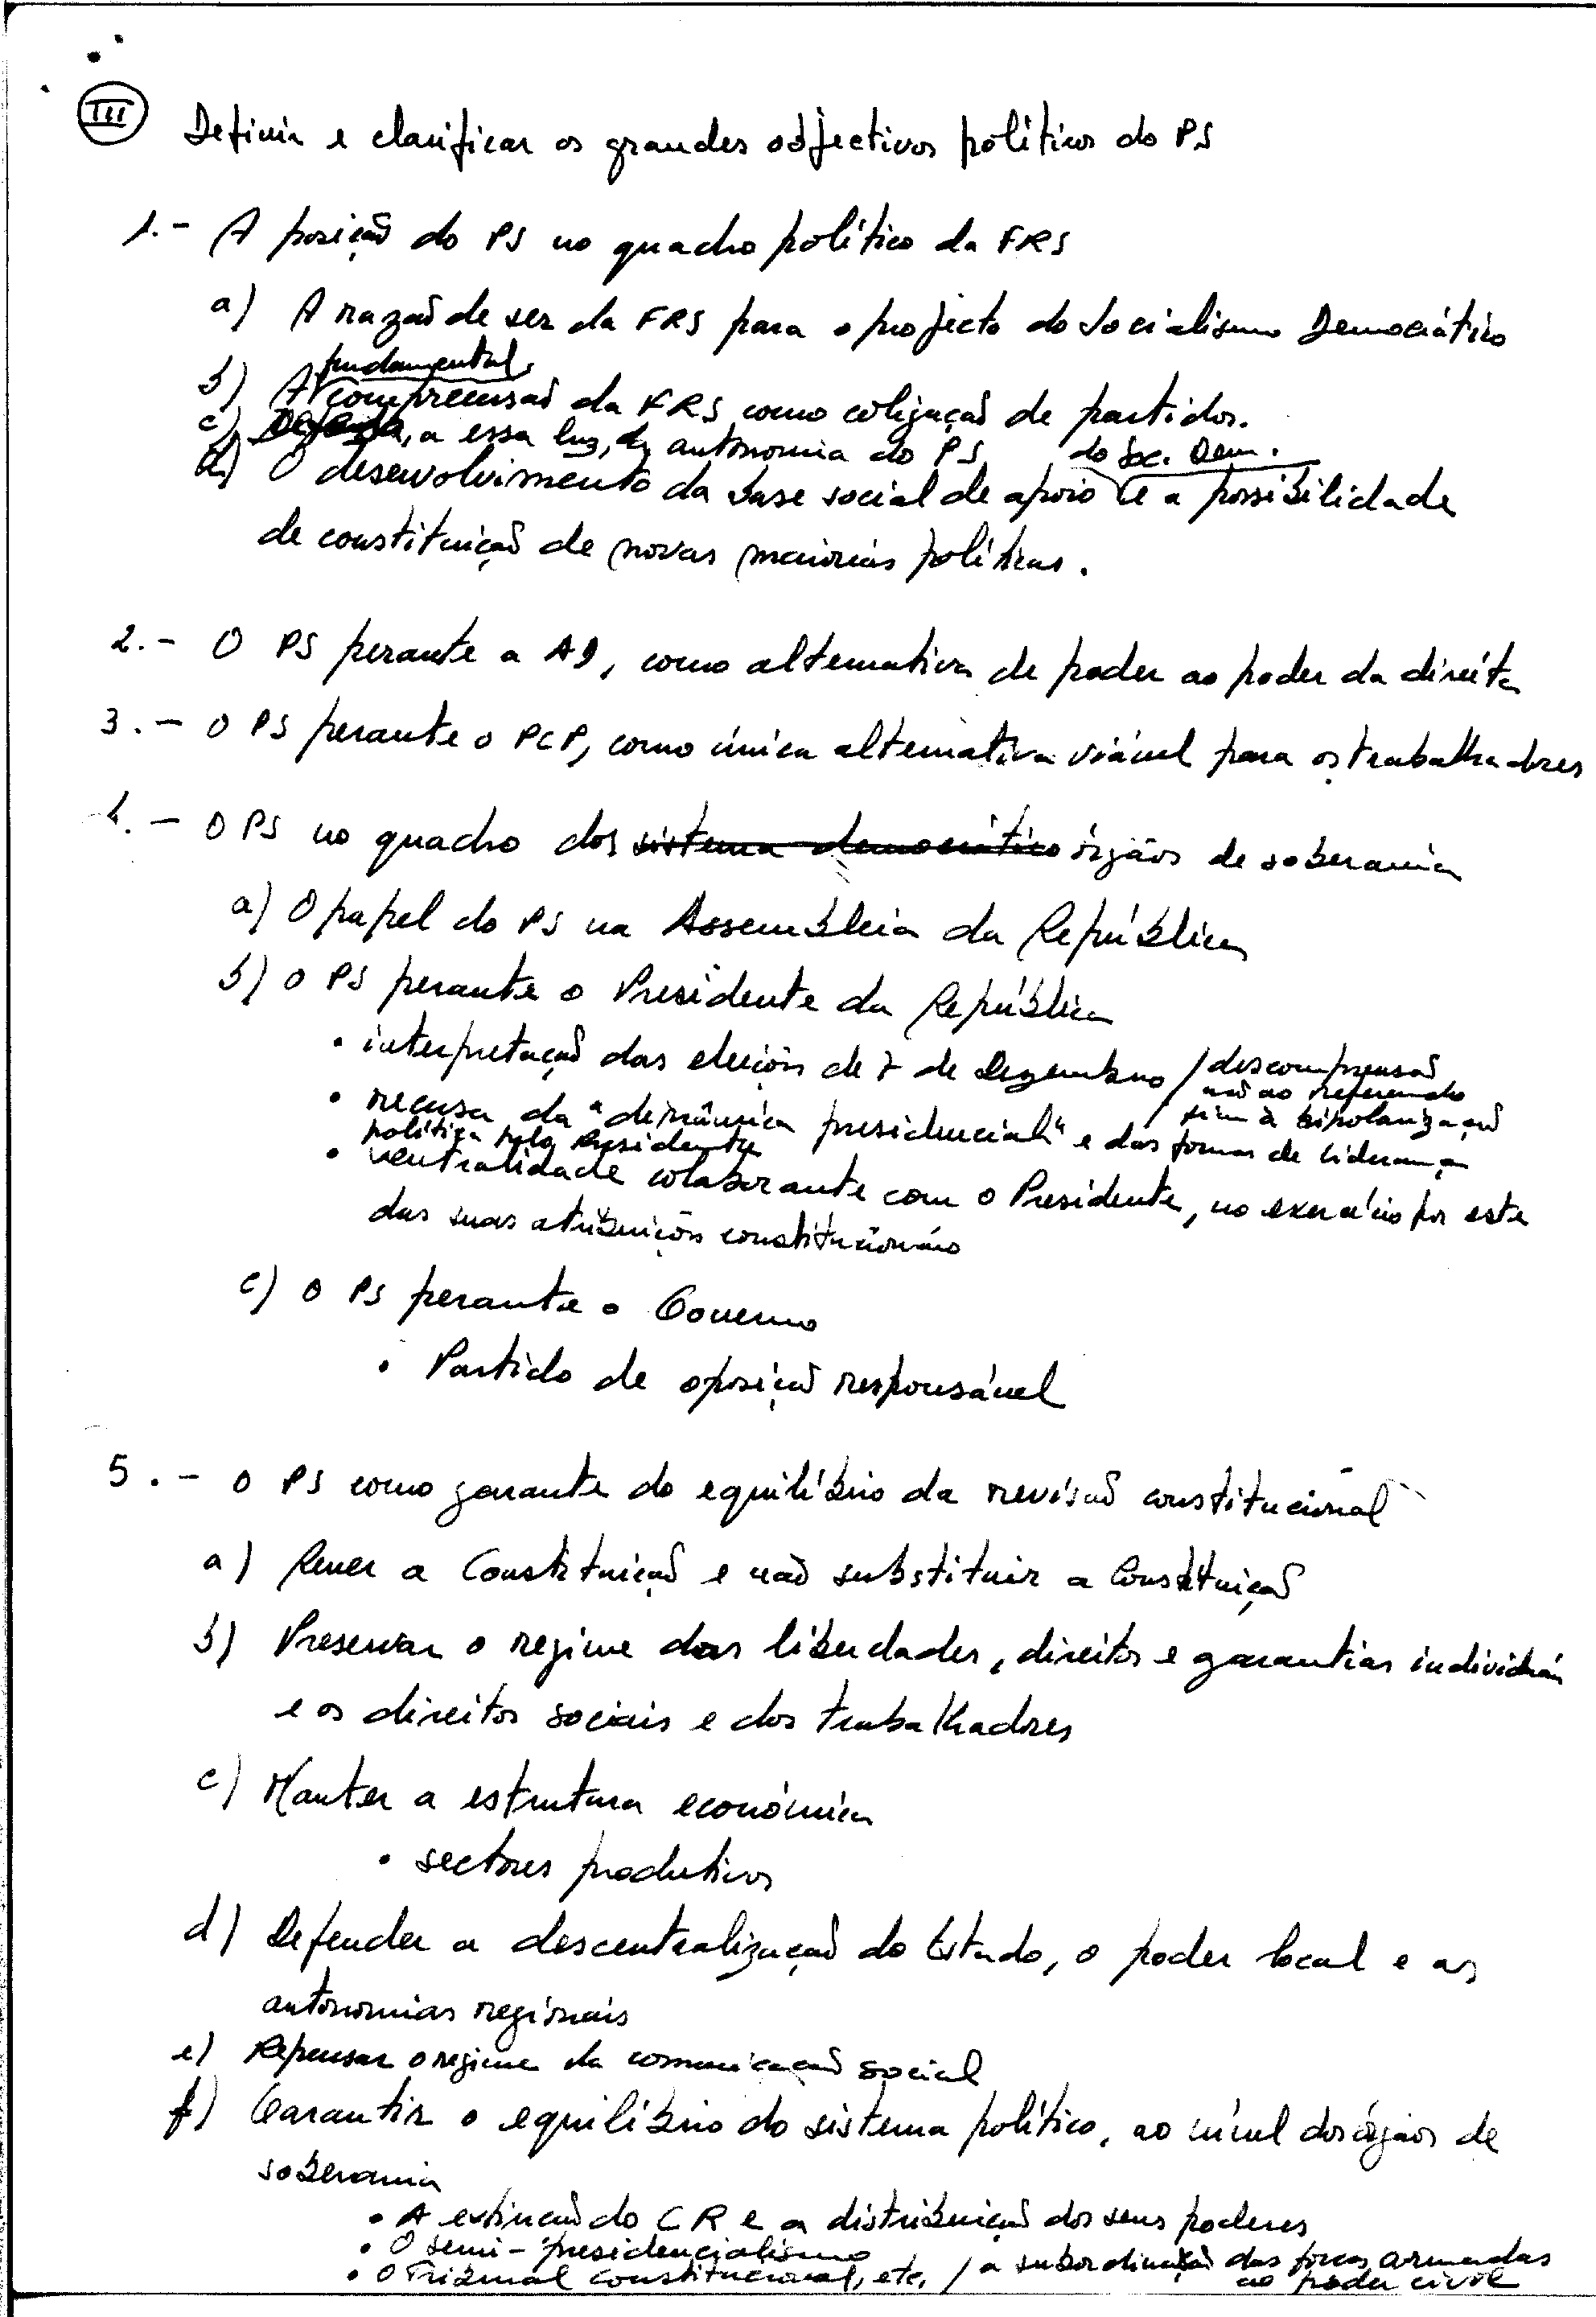 III Definir e clarificar os grandes objectivos políticos do PS
1.- A posição do PS no quadro político da FRS
a) A razão de ser da FRS para o projecto do Socialismo Democrático
fundamental
b) A compreensão da FRS como coligação de partidos.
c) Defesa, a essa luz, da autonomia do PS
do Soc. Dem.
d) O desenvolvimento da base social de apoio e a possibilidade
de constituição de novas maiorias políticas.
2.- O PS perante a AD, como alternativa de poder ao poder da direita
3.- O PS perante o PCP, como única alternativa viável para os trabalhadores
4.- O PS no quadro dos sistema democrático órgãos de soberania
a) O papel do PS na Assembleia da República
b) O PS perante o Presidente da República
• interpretação das eleições de 7 de Dezembro / descompressão
não ao referendo
sim à bipolarização
• recusa da "dinâmica presidencial" e das formas de liderança
política pelo Presidente
• neutralidade colaborante com o Presidente, no exercício por este
das suas atribuições constitucionais
c) O PS perante o Governo
• Partido de oposição responsável
5.- O PS como garante do equilíbrio da revisão constitucional
a) Rever a Constituição e não substituir a Constituição
b) Preservar o regime das liberdades, direitos e garantias individuais
e os direitos sociais e dos trabalhadores
c) Manter a estrutura económica
• sectores produtivos
d) Defender a descentralização do Estado, o poder local e as
autonomias regionais
e) Repensar o regime da comunicação social
f) Garantir o equilíbrio do sistema político, ao nível dos órgãos de
soberania
• A extinção do CR e a distribuição dos seus poderes
• O semi-presidencialismo
• O Tribunal constitucional, etc. / a subordinação das forças armadas
ao poder civil